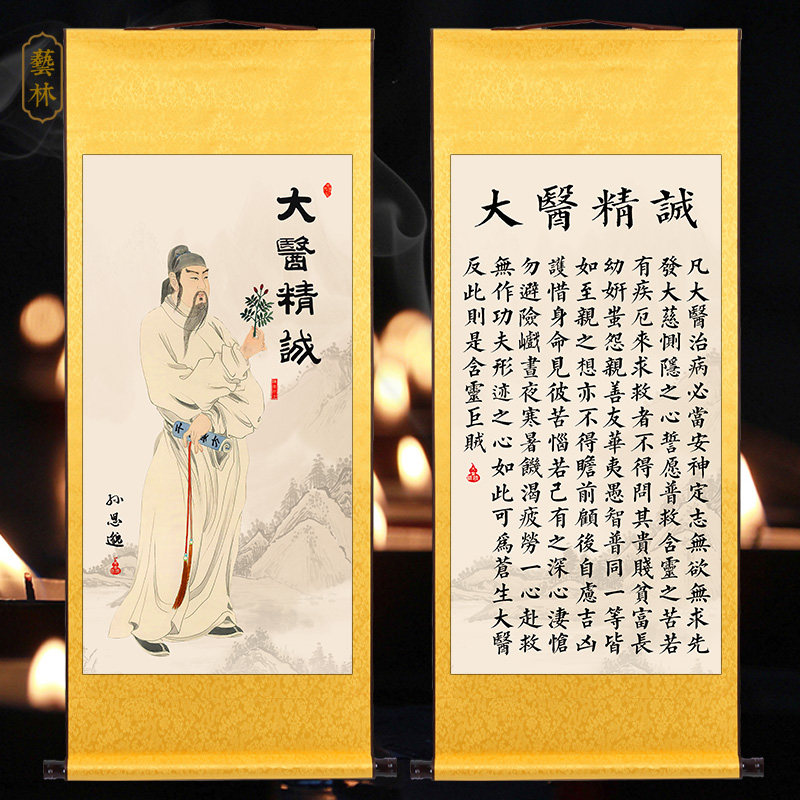 藝林
大醫精誠
孙思邈
大醫精誠
凡大醫治病必當安神定志無欲無求先
發大慈惻隱之心誓愿普救含靈之苦若
有疾厄來求救者不得問其貴賤貧富長
幼妍蚩怨親善友華夷愚智普同一等皆
如至親之想亦不得瞻前顧後自慮吉凶
護惜身命見彼苦惱若己有之深心淒愴
勿避險巇晝夜寒暑饑渴疲勞一心赴救
無作功夫形迹之心如此可爲蒼生大醫
反此則是含靈巨賊